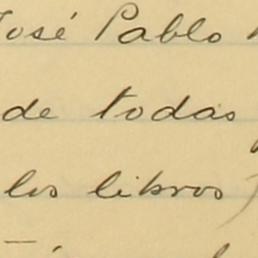 José Pablo
de todas
los libros)